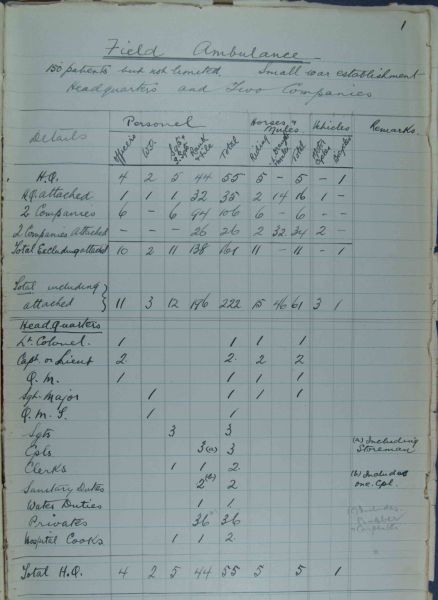 1
Field Ambulance
150 patients but not limited, Small war establishment
Headquarters and Two Companies
Personnel Horses & Mules Vehicles
Details Officers W.O. Sgts Rank & File Total Riding Draught Total Bicycles Remarks.
H.Q. 4 2 5 44 55 5 - 5 - 1
H.Q. attached 1 1 1 32 35 2 14 16 1 -
2 Companies 6 - 6 94 106 6 - 6 - -
2 Companies Attached - - - 26 26 2 32 34 2 -
Total Excluding attached 10 2 11 138 161 11 - 11 - 1
Total including
attached } 11 3 12 196 222 15 46 61 3 1
Headquarters
Lt. Colonel. 1 1 1 1
Capt. or Lieut 2 2. 2 2
Q.M. 1 1 1 1
Sgt. Major 1 1 1 1
Q.M.S. 1 1
Sgts 3 3
Cpls 3 (a) 3 (a) Including
Storeman
Clerks 1 1 2.
Sanitary Duties 2 (b) 2 (b) Includes
one. Cpl.
Water Duties 1 1.
Privates 36 36 (c) Includes
Hospital Cooks 1 1 2.
Total H.Q. 4 2 5 44 55 5 5 1